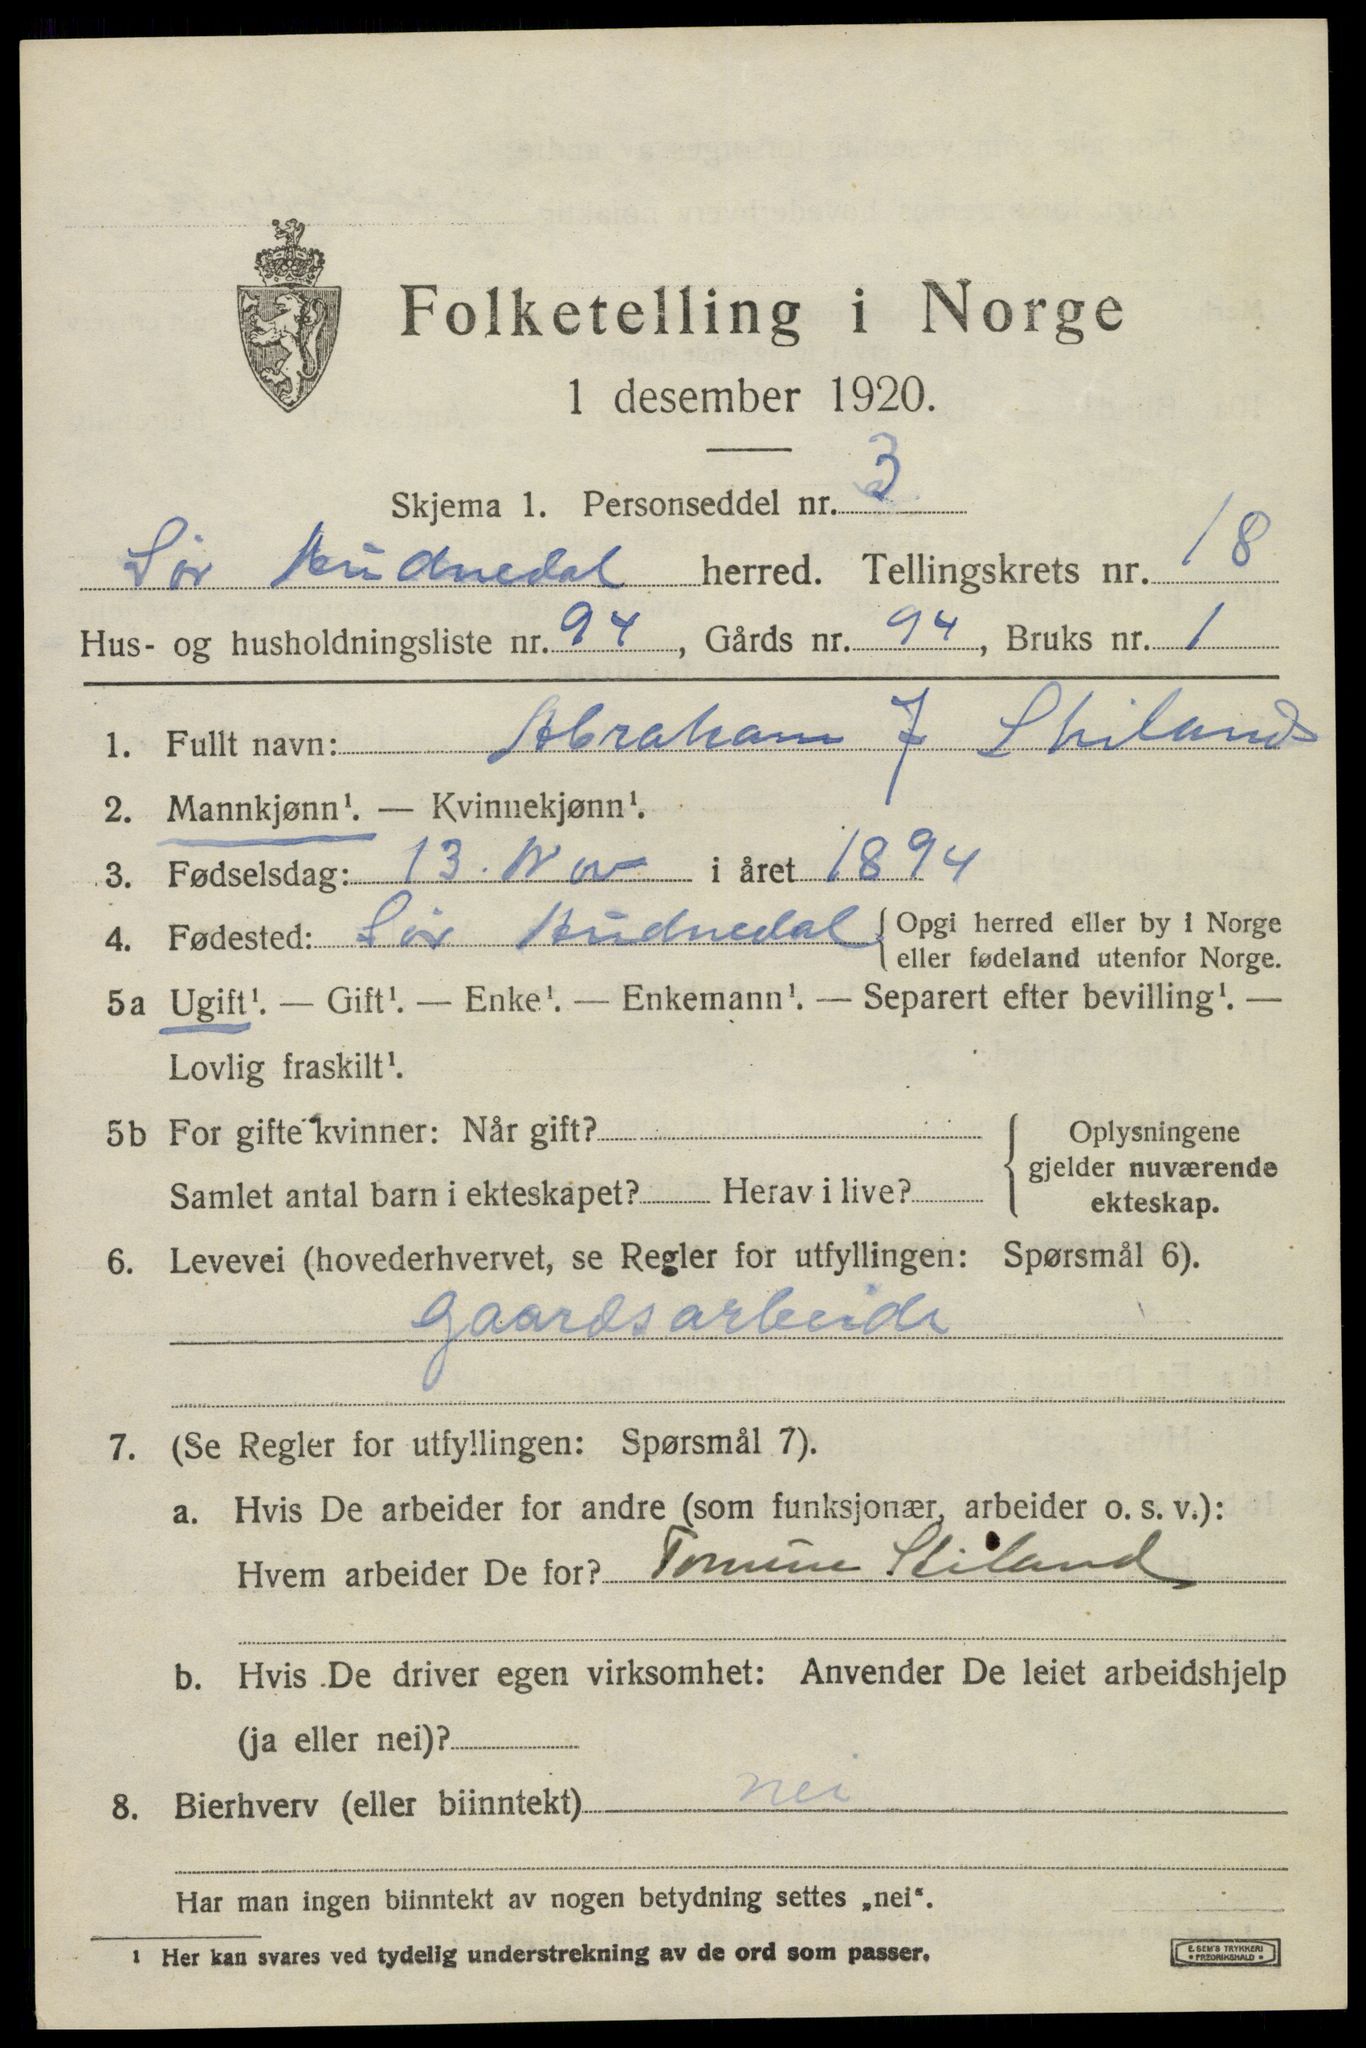 Folketelling i Norge
1 desember 1920.
Skjema 1. Personseddel nr. 3
Sör Audnedal herred. Tellingskrets nr. 18
Hus- og husholdningsliste nr. 94, Gårds nr. 94, Bruks nr. 1
1. Fullt navn: Abraham J Skiland
2. Mannkjønn¹. — Kvinnekjønn¹.
3. Fødselsdag: 13. Nov i året 1894
4. Fødested: Sör Audnedal { Opgi herred eller by i Norge
eller fødeland utenfor Norge.
5a Ugift¹. — Gift¹. — Enke¹. — Enkemann¹. — Separert efter bevilling¹. —
Lovlig fraskilt¹.
5b For gifte kvinner: Når gift?
Samlet antal barn i ekteskapet? Herav i live?
Oplysningene
gjelder nuværende
ekteskap.
6. Levevei (hovederhvervet, se Regler for utfyllingen: Spørsmål 6).
Gaardsarbeide
7. (Se Regler for utfyllingen: Spørsmål 7).
a. Hvis De arbeider for andre (som funksjonær, arbeider o. s. v.):
Hvem arbeider De for? Tomine Skiland
b. Hvis De driver egen virksomhet: Anvender De leiet arbeidshjelp
(ja eller nei)?
8. Bierhverv (eller biinntekt) nei
Har man ingen biinntekt av nogen betydning settes „nei“.
¹ Her kan svares ved tydelig understrekning av de ord som passer.
E. SEM'S TRYKKERI
• FREDRIKSHALD •